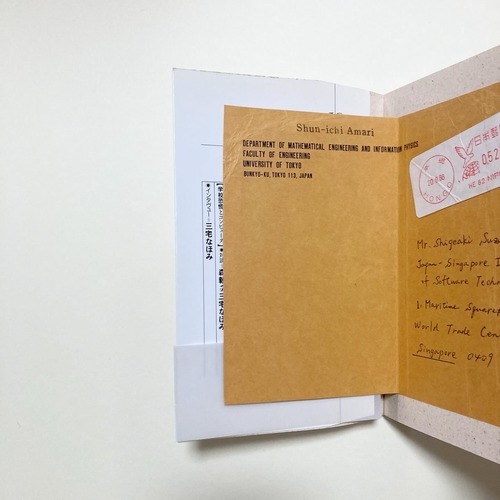 Shun-ichi Amari
DEPARTMENT OF MATHEMATICAL ENGINEERING AND INFORMATION PHYSICS
FACULTY OF ENGINEERING
UNIVERSITY OF TOKYO
BUNKYO-KU, TOKYO 113, JAPAN
日本
052
HONGO
Mr. Shigeaki
Japan-Singapore
of Software
1, Maritime Square
World Trade
Singapore 0409
●インタヴュー：三宅なほみ
三宅なほみ